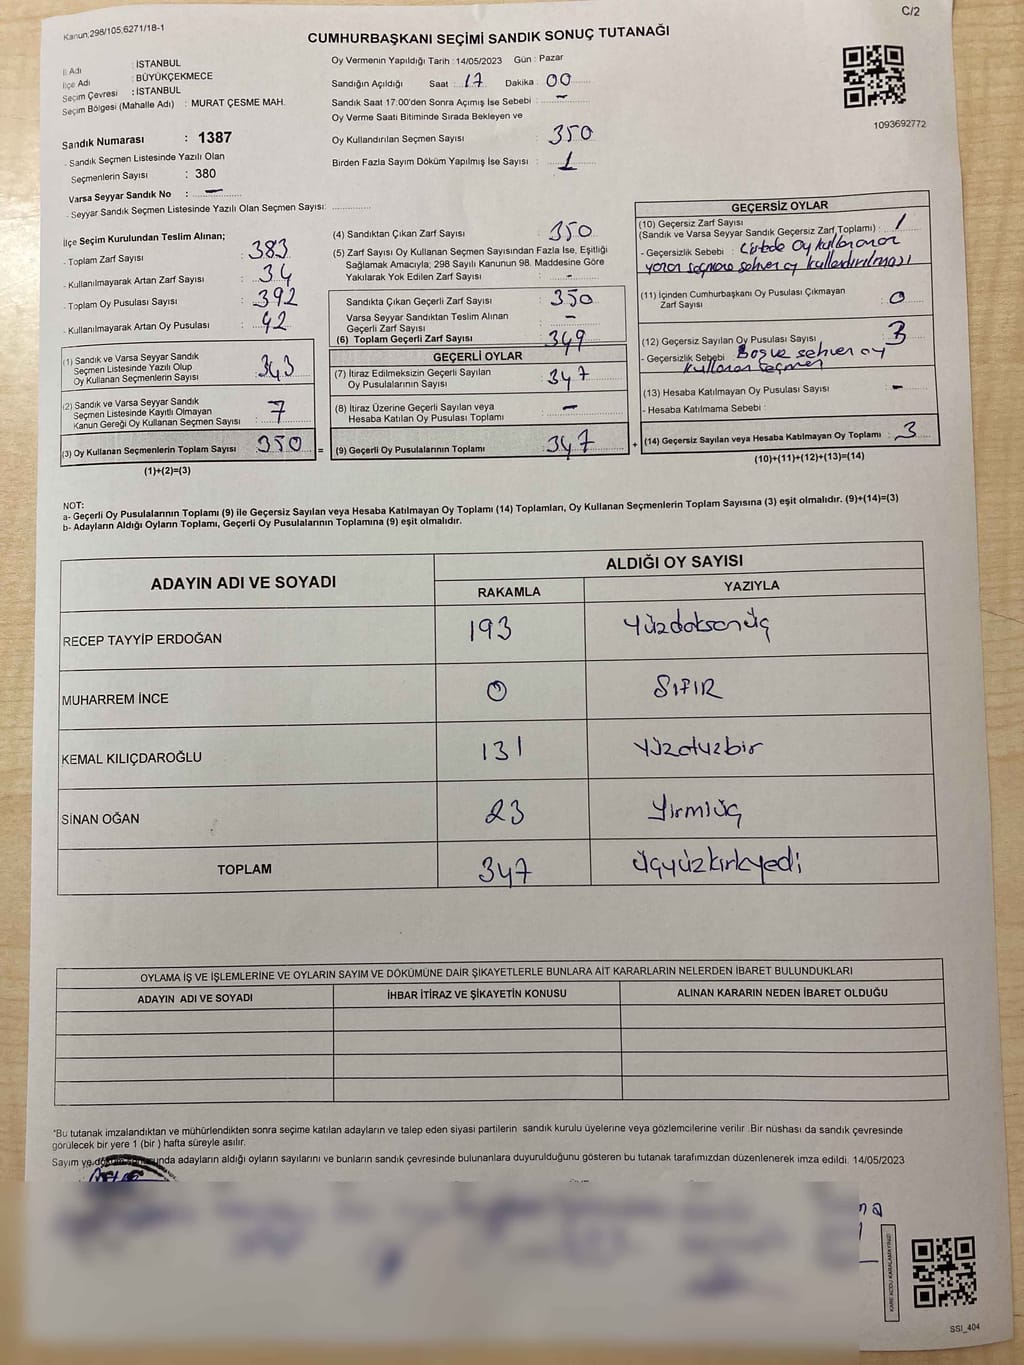 Kanun,298/105,6271/18-1
C/2
CUMHURBAŞKANI SEÇİMİ SANDIK SONUÇ TUTANAĞI
İl Adı : İSTANBUL
İlçe Adı : BÜYÜKÇEKMECE
Seçim Çevresi : İSTANBUL
Seçim Bölgesi (Mahalle Adı) : MURAT ÇESME MAH.
Sandık Numarası : 1387
- Sandık Seçmen Listesinde Yazılı Olan
Seçmenlerin Sayısı : 380
Varsa Seyyar Sandık No : —
- Seyyar Sandık Seçmen Listesinde Yazılı Olan Seçmen Sayısı:
Oy Vermenin Yapıldığı Tarih : 14/05/2023 Gün : Pazar
Sandığın Açıldığı Saat : 17 Dakika : 00
Sandık Saat 17:00'den Sonra Açımış İse Sebebi : —
Oy Verme Saati Bitiminde Sırada Bekleyen ve
Oy Kullandırılan Seçmen Sayısı : 350
Birden Fazla Sayım Döküm Yapılmış İse Sayısı : 1
1093692772
İlçe Seçim Kurulundan Teslim Alınan;
- Toplam Zarf Sayısı : 383
- Kullanılmayarak Artan Zarf Sayısı : 34
- Toplam Oy Pusulası Sayısı : 392
- Kullanılmayarak Artan Oy Pusulası : 42
(1) Sandık ve Varsa Seyyar Sandık
Seçmen Listesinde Yazılı Olup
Oy Kullanan Seçmenlerin Sayısı : 343
(2) Sandık ve Varsa Seyyar Sandık
Seçmen Listesinde Kayıtlı Olmayan
Kanun Gereği Oy Kullanan Seçmen Sayısı : 7
(3) Oy Kullanan Seçmenlerin Toplam Sayısı : 350 =
(1)+(2)=(3)
(4) Sandıktan Çıkan Zarf Sayısı : 350
(5) Zarf Sayısı Oy Kullanan Seçmen Sayısından Fazla İse, Eşitliği
Sağlamak Amacıyla; 298 Sayılı Kanunun 98. Maddesine Göre
Yakılarak Yok Edilen Zarf Sayısı : -
Sandıkta Çıkan Geçerli Zarf Sayısı : 350
Varsa Seyyar Sandıktan Teslim Alınan
Geçerli Zarf Sayısı : —
(6) Toplam Geçerli Zarf Sayısı : 349
GEÇERLİ OYLAR
(7) İtiraz Edilmeksizin Geçerli Sayılan
Oy Pusulalarının Sayısı : 347
(8) İtiraz Üzerine Geçerli Sayılan veya
Hesaba Katılan Oy Pusulası Toplamı : —
(9) Geçerli Oy Pusulalarının Toplamı : 347 +
GEÇERSİZ OYLAR
(10) Geçersiz Zarf Sayısı
(Sandık ve Varsa Seyyar Sandık Geçersiz Zarf Toplamı) : 1
- Geçersizlik Sebebi : Listede Oy kullananar
yazan seçmene sehven oy kullandırılması
(11) İçinden Cumhurbaşkanı Oy Pusulası Çıkmayan
Zarf Sayısı : 0
(12) Geçersiz Sayılan Oy Pusulası Sayısı : 3
- Geçersizlik Sebebi : Boş ve sehven oy
kullanan seçmen
(13) Hesaba Katılmayan Oy Pusulası Sayısı : -
- Hesaba Katılmama Sebebi :
(14) Geçersiz Sayılan veya Hesaba Katılmayan Oy Toplamı : 3
(10)+(11)+(12)+(13)=(14)
NOT:
a- Geçerli Oy Pusulalarının Toplamı (9) ile Geçersiz Sayılan veya Hesaba Katılmayan Oy Toplamı (14) Toplamları, Oy Kullanan Seçmenlerin Toplam Sayısına (3) eşit olmalıdır. (9)+(14)=(3)
b- Adayların Aldığı Oyların Toplamı, Geçerli Oy Pusulalarının Toplamına (9) eşit olmalıdır.
ADAYIN ADI VE SOYADI ALDIĞI OY SAYISI
RAKAMLA YAZIYLA
RECEP TAYYİP ERDOĞAN 193 Yüzdoksanüç
MUHARREM İNCE 0 SIFIR
KEMAL KILIÇDAROĞLU 131 Yüzotuzbir
SİNAN OĞAN 23 Yirmiüç
TOPLAM 347 Üçyüzkırkyedi
OYLAMA İŞ VE İŞLEMLERİNE VE OYLARIN SAYIM VE DÖKÜMÜNE DAİR ŞİKAYETLERLE BUNLARA AİT KARARLARIN NELERDEN İBARET BULUNDUKLARI
ADAYIN ADI VE SOYADI İHBAR İTİRAZ VE ŞİKAYETİN KONUSU ALINAN KARARIN NEDEN İBARET OLDUĞU
*Bu tutanak imzalandıktan ve mühürlendikten sonra seçime katılan adayların ve talep eden siyasi partilerin sandık kurulu üyelerine veya gözlemcilerine verilir. Bir nüshası da sandık çevresinde
görülecek bir yere 1 (bir ) hafta süreyle asılır.
Sayım ve döküm sonucunda adayların aldığı oyların sayılarını ve bunların sandık çevresinde bulunanlara duyurulduğunu gösteren bu tutanak tarafımızdan düzenlenerek imza edildi. 14/05/2023
KARE KODU KARALAMAYINIZ!
SSI_404